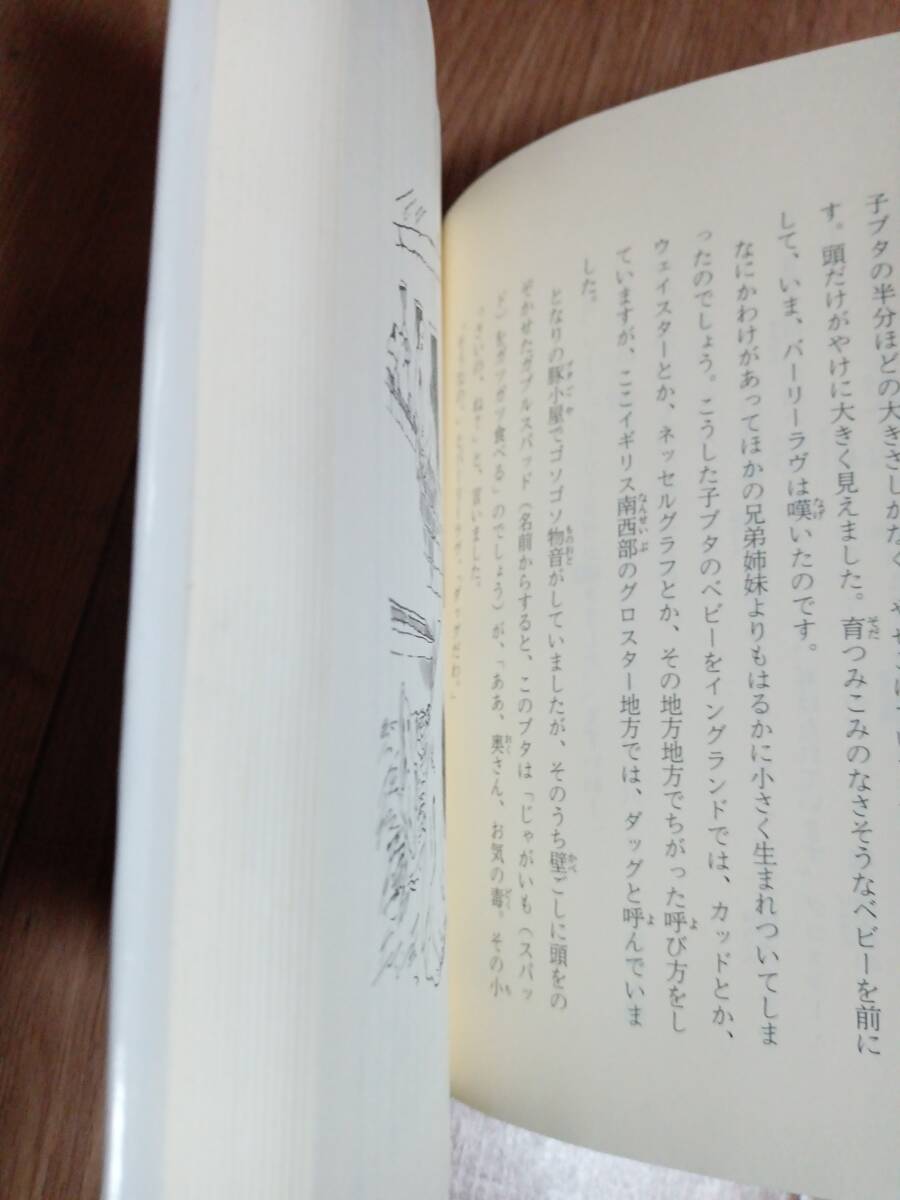 子ブタの半分ほどの大きさしかなく、やせこけてい
す。頭だけがやけに大きく見えました。育つみこみのなさそうなベビーを前に
して、いま、バーリーラヴは嘆いたのです。
なにかわけがあってほかの兄弟姉妹よりもはるかに小さく生まれついてしま
ったのでしょう。こうした子ブタのベビーをイングランドでは、カッドとか、
ウェイスターとか、ネッセルグラフとか、その地方地方でちがった呼び方をし
ていますが、ここイギリス南西部のグロスター地方では、ダッグと呼んでいま
した。
となりの豚小屋でゴソゴソ物音がしていましたが、そのうち壁ごしに頭をの
ぞかせたガブルスパッド（名前からすると、このブタは「じゃがいも（スパッ
ド）をガツガツ食べる」のでしょう）が、「ああ、奥さん、お気の毒。その小
さいの、ね？」と、言いました。
ダッグだわ。」